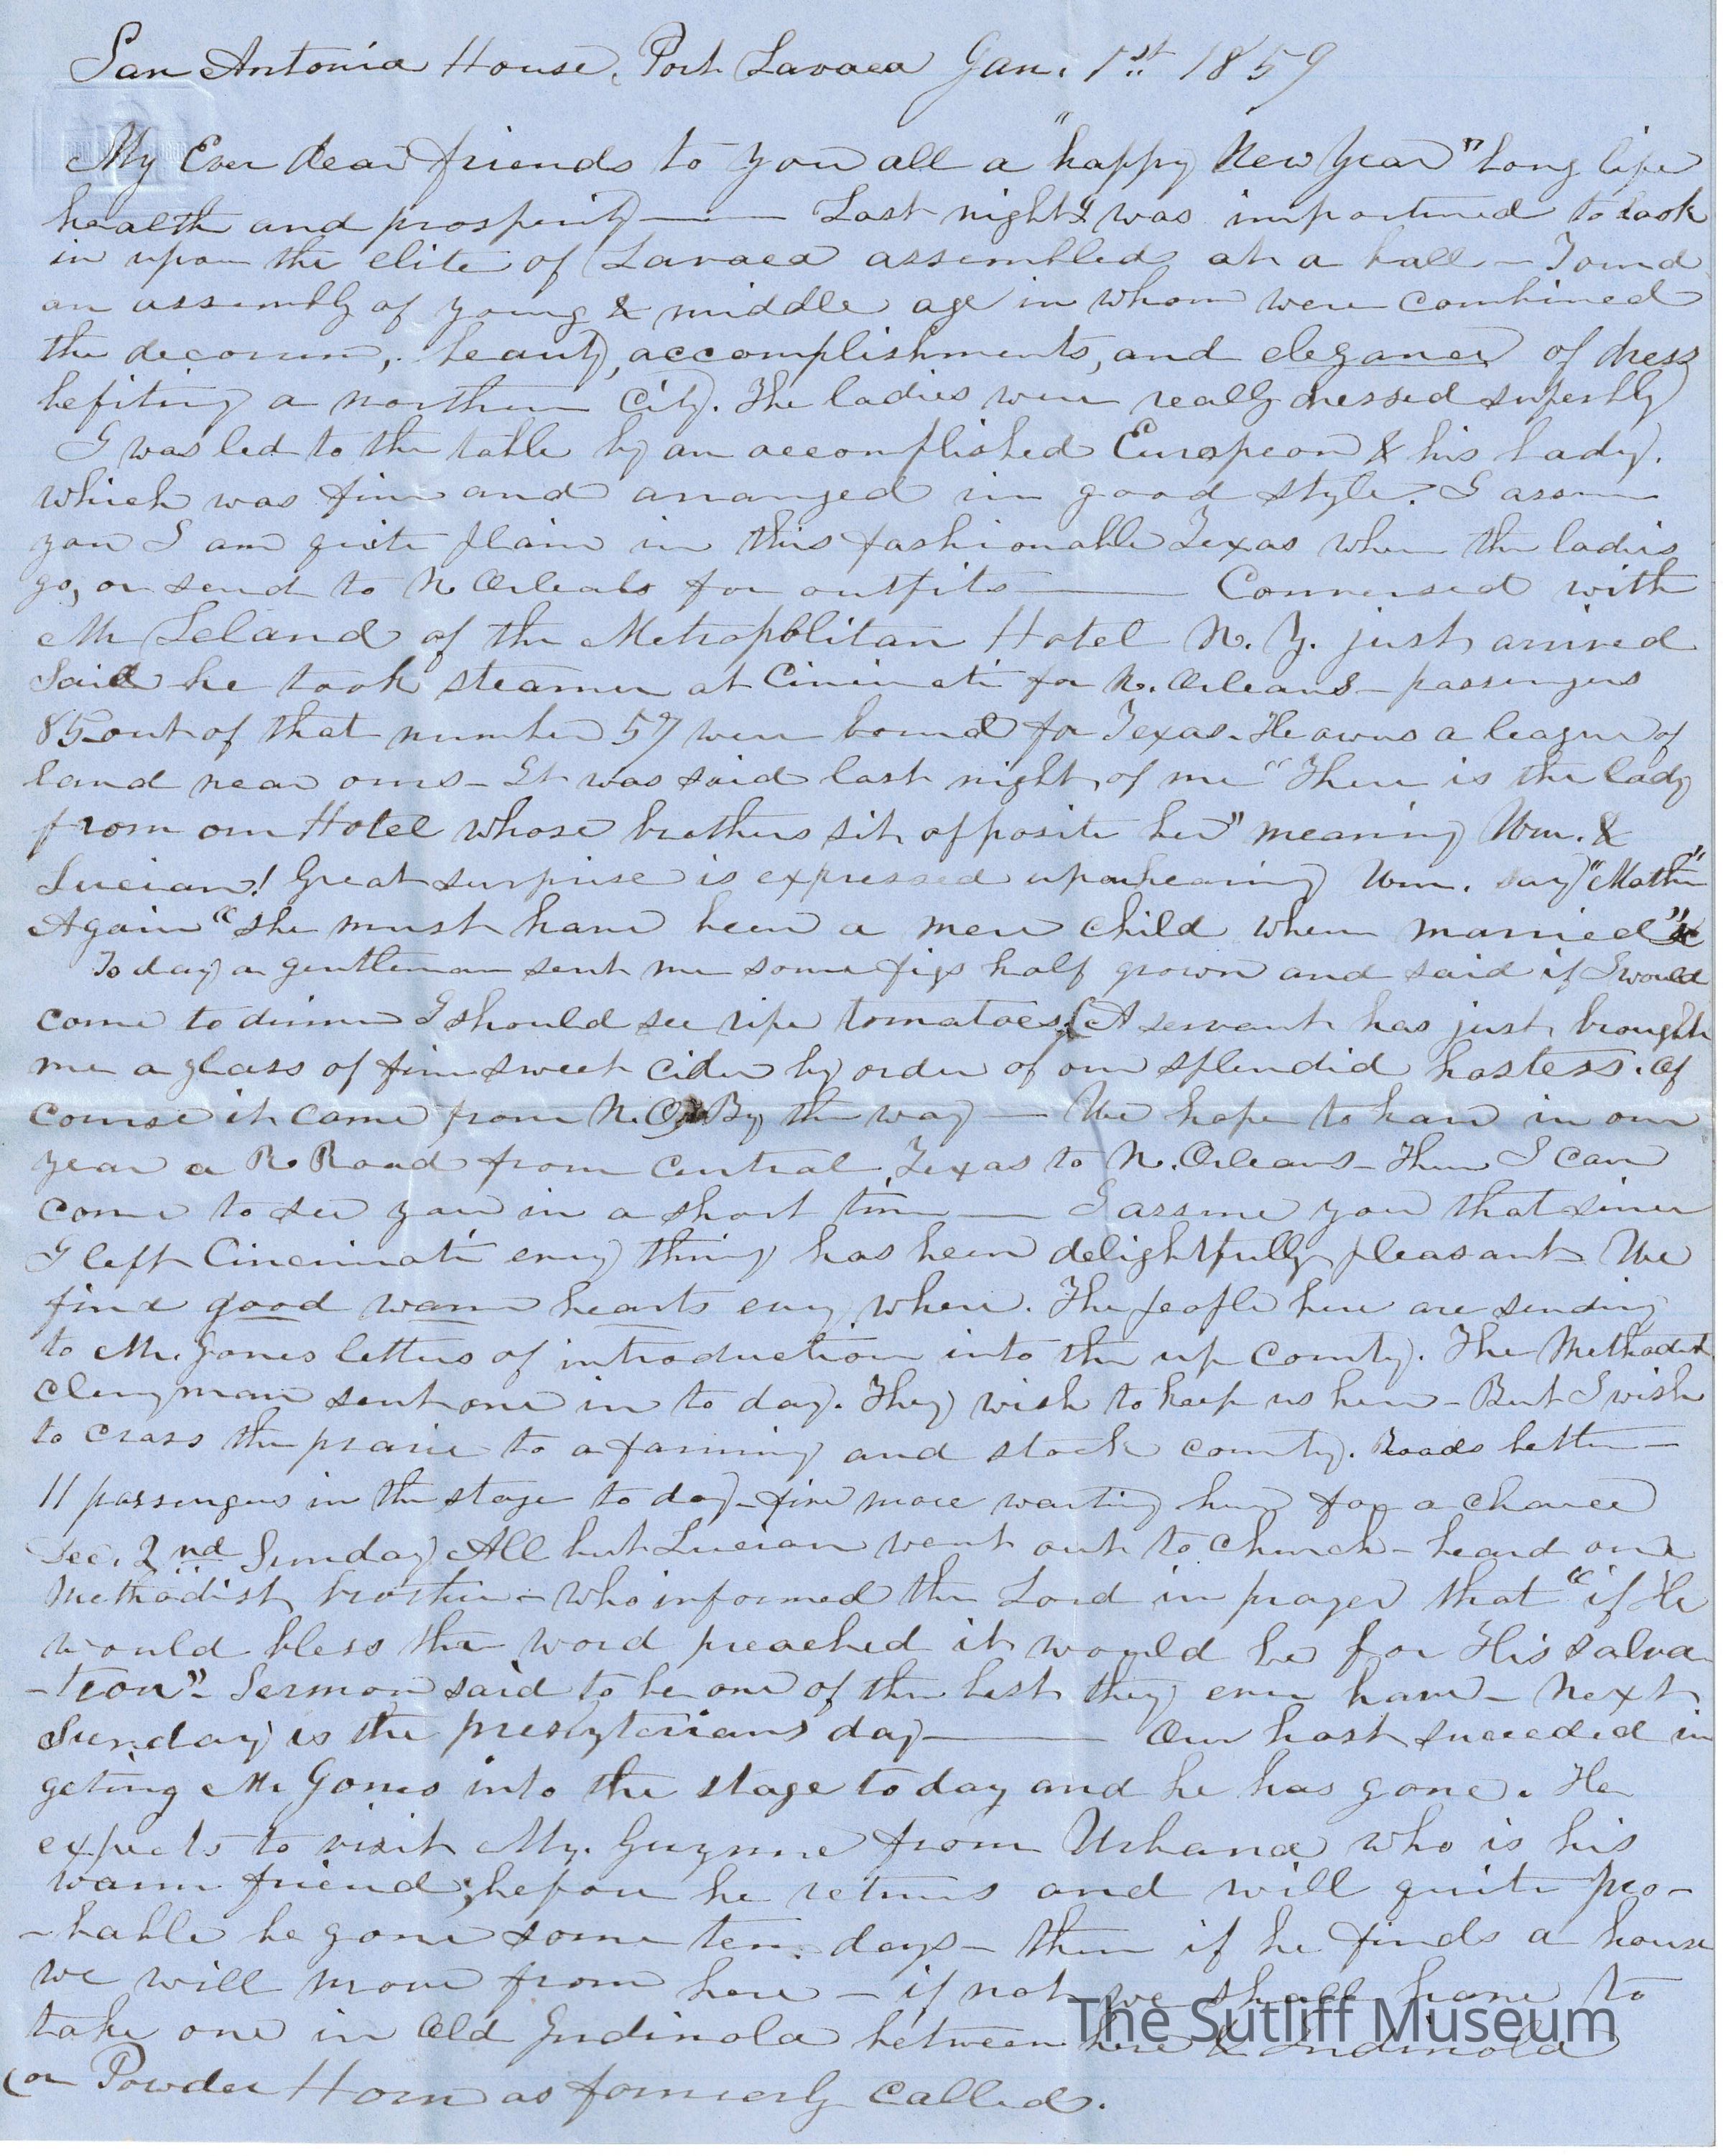 San Antonia House, Port Lavaca Jan. 1st 1859
My Ever dear friends to you all a "happy New Year" Long life
health and prosperity —— Last night I was importuned to look
in upon the elite of Lavaca assembled at a ball – Found
an assembly of young & middle age in whom were combined
the decorum, beauty, accomplishments, and elegance of dress
befiting a northern City. The ladies were really dressed superbly
I was led to the table by an accomplished European & his lady.
which was fine and arranged in good style. I assure
you I am quite plain in this fashionable Texas where the ladies
go, or send to N Orleans for outfits —— Conversed with
Mr Leland of the Metropolitan Hotel N. Y. just arrived
Said he took steamer at Cincinati for N. Orleans – passengers
85 out of that number 57 were bound for Texas. He owns a league of
land near ours – It was said last night, of me "There is the lady
from our Hotel whose brothers sit opposite her" meaning Wm. &
Lucian! Great surprise is expressed upon hearing Wm. say "Mother"
Again "she must have been a mere child when married"
To day a gentleman sent me some figs half grown and said if I would
come to dinner I should see ripe tomatoes. A servant has just brought
me a glass of fine sweet cider by order of our splendid hostess. of
course it came from N. O. By the way — We hope to have in one
year a R. Road from Central Texas to N. Orleans – Then I can
come to see you in a short time — I assure you that since
I left Cincinnati every thing has been delightfully pleasant We
find good warm hearts every where. The people here are sending
to Mr. Jones letters of introduction into the up County. The Methodist
Clergyman sent one in to day. They wish to keep us here – But I wish
to cross the prairie to a farming and stock county. Roads better –
11 passengers in the stage to day – five more waiting here for a chance
Dec. 2nd Sunday All but Lucian went out to Church – heard one
Methodist brother – who informed the Lord in prayer that "if He
would bless the word preached it would be for His salva
-tion" – Sermon said to be one of the best they ever have – Next
Sunday is the presbyterians day —— Our host succeeded in
geting Mr Jones into the stage to day and he has gone. He
expects to visit My. Guynne from Urbana who is his
warm friend; before he returns and will quite pro-
-bable be gone some ten days – then if he finds a house
we will move from here – if not we shall have to
take one in Old Indinola between here & Indinola
(or Powder Horn as formerly called.
The Sutliff Museum